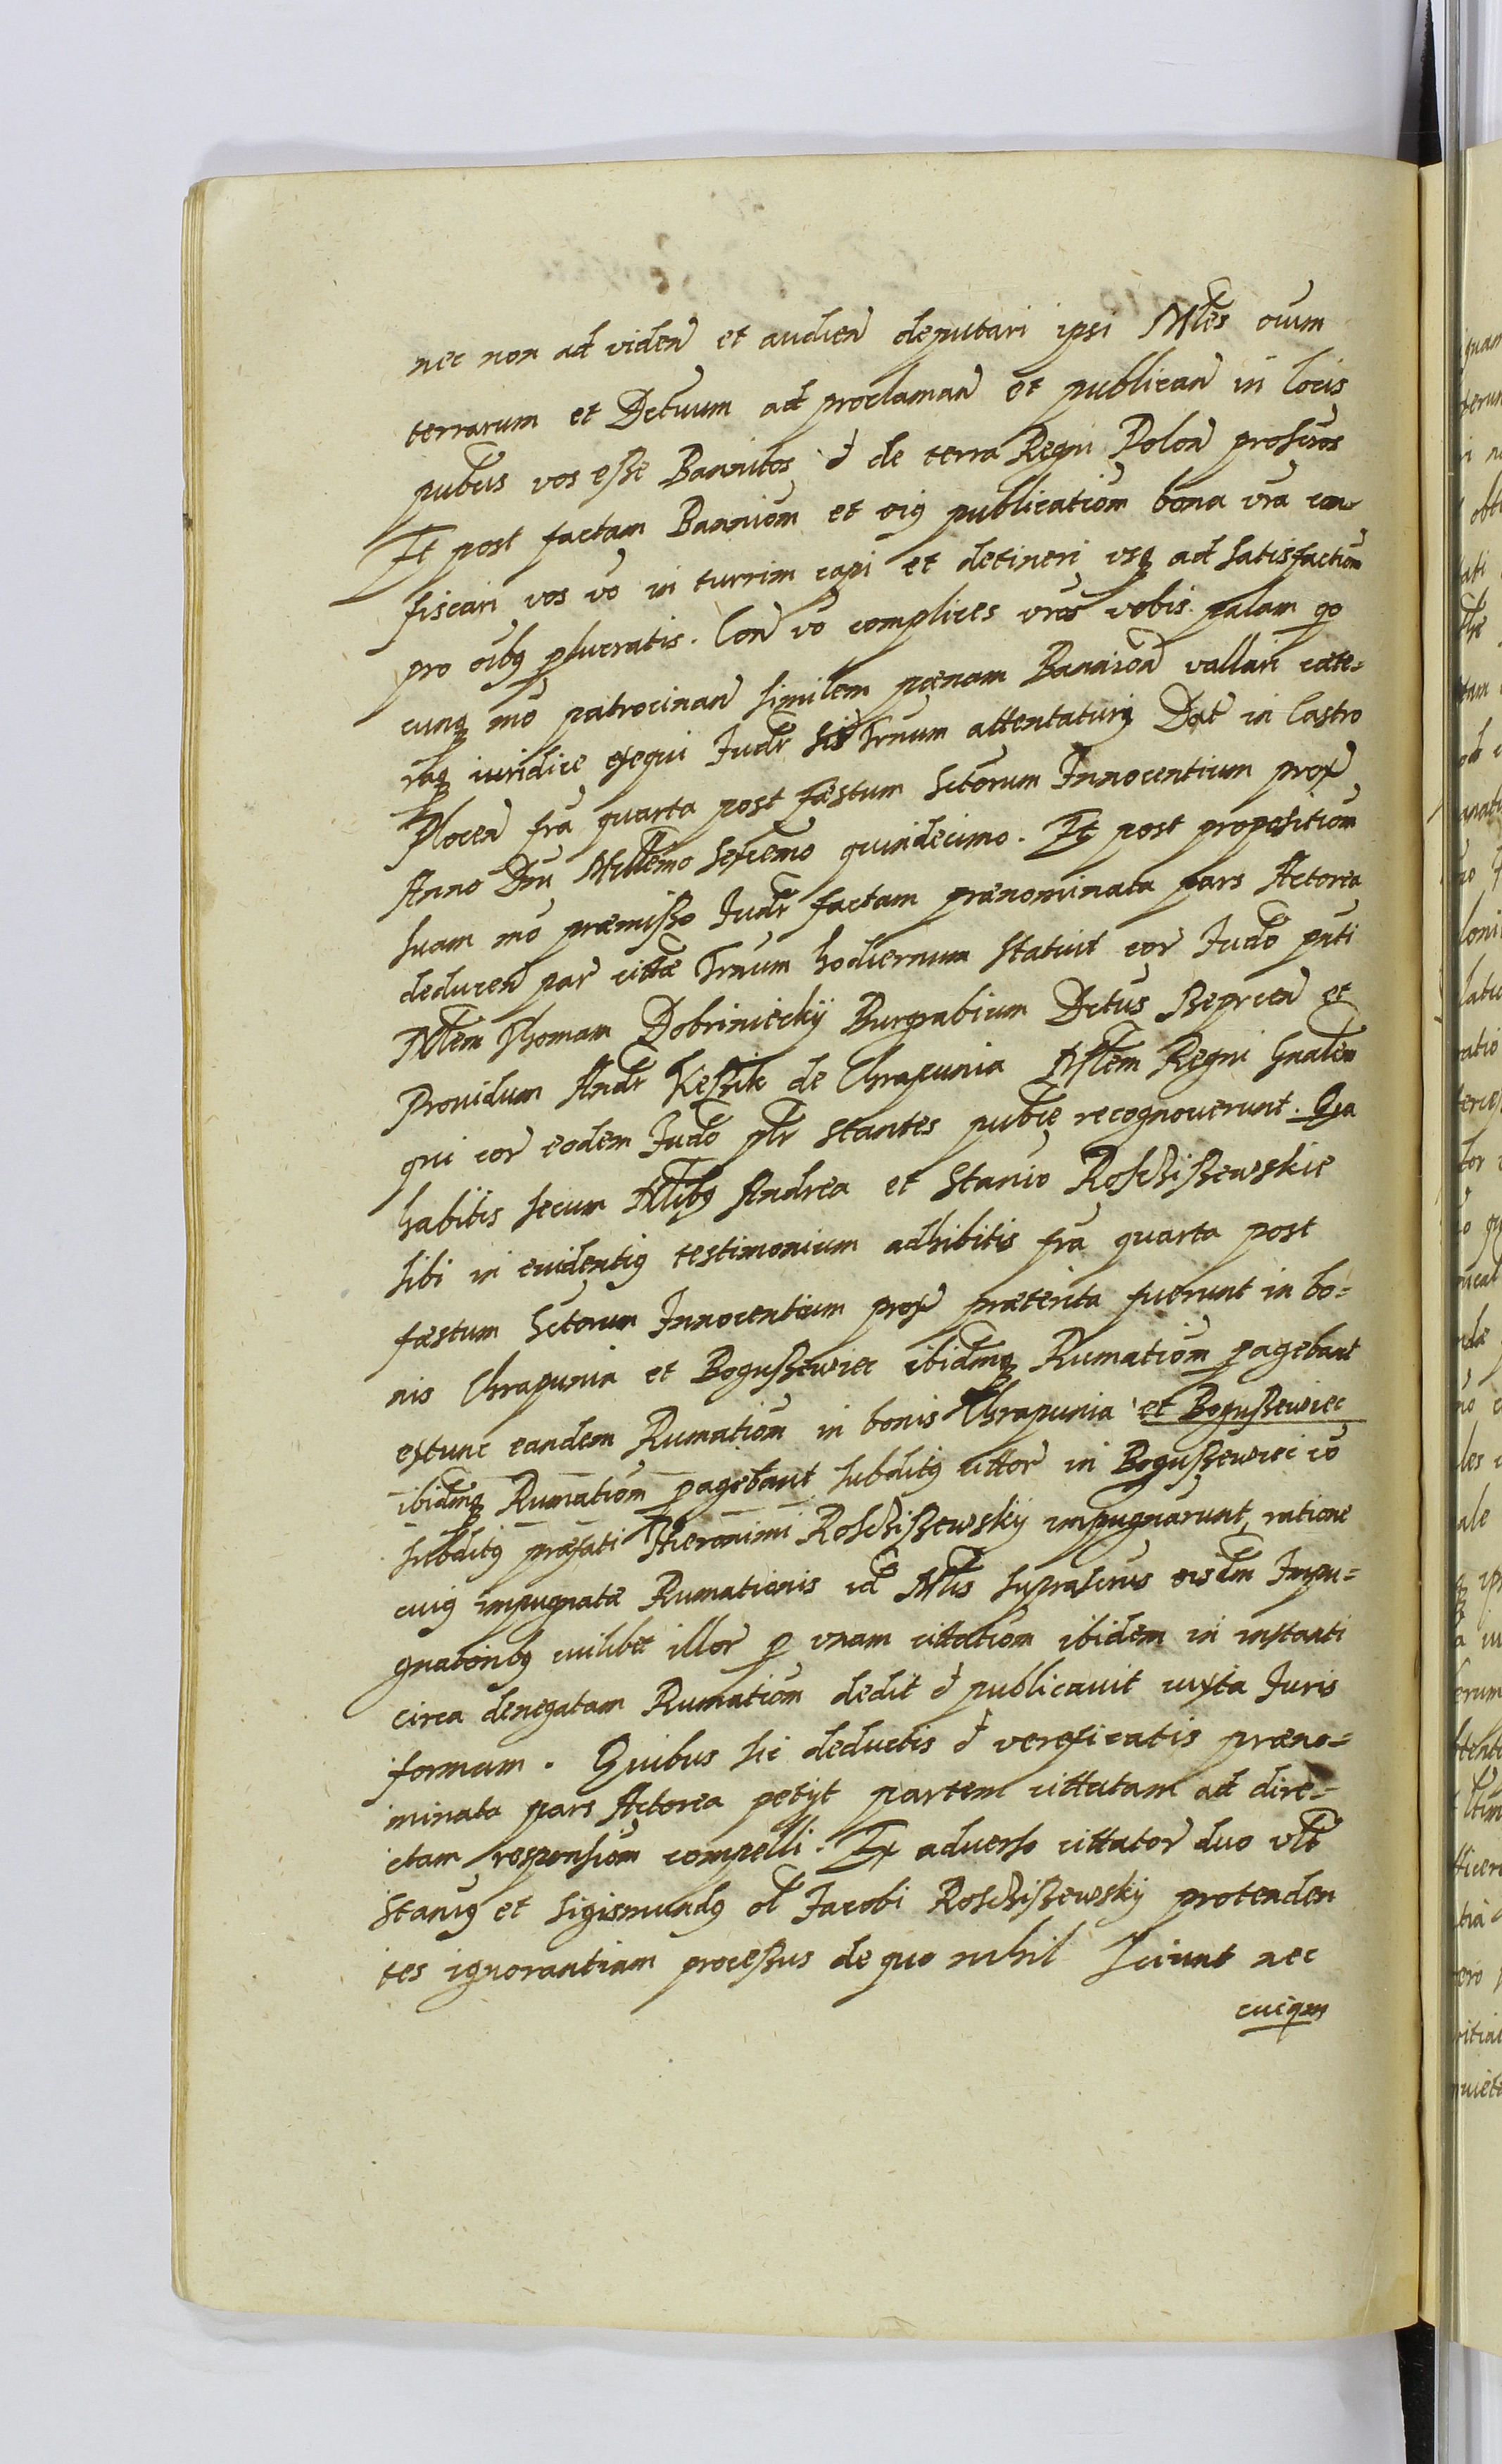 nec non ad viden et audien deputari ipsi Mltes oium
terrarum et Dctuum ad proclaman et publican in locis
publcis vos esse Bannitos et de terra Regni Polon proscrtos
Et post factam Banniom et eius publicatiom bona vra con-
fiscari vos vo in turrim capi et detineri usq ad satisfactiom
pro oibus plucratis. Con vo complices vros vobis palam quo
cunq mo patrocinan similem pœnam Bannion vallari cæte-
raq iuridice exequi Judr his Trnum attentaturus Dat in Castro
Plocen fra quarta post Fæstum Sctorum Innocentium prox
Anno Dni Millemo Sexcemo quindecimo. Et post propositiom
suam mo præmisso Judr factam prænominata pars Actorea
deducen par cittæ Trnum hodiernum statuit cor Judo pnti
Mltem Thomam Dobriniecky Burgrabium Dctus Sieprcen et
Prouidum Andr Keßik de Chrapunia Mltem Regni Gnalem
qui cor eodem Judo plr stantes publce recognouerunt. Qia
habitis secum Mltibus Andrea et Stanio Roschißewskie
sibi in euidentius testimonium adhibitis fra quarta post
fæstum Sctorum Innocentium prox præterita fuerunt in bo-
nis Chrapunia et Bogußewiec ibidmq Rumatiom pagebant
extunc eandem Rumatiom in bonis Chrapunia et Bogußewiec
ibidmq Rumatiom pagebant subditus cittor in Bogußewiec vo
subditus præfati Hieronimi Roschißewsky impugnarunt, ratione
cuius impugnatæ Rumationis id Mltis suprascrus eisdm Impu-
gnatoribus cuilibet illor p vnam cittatiom ibidem in instanti
circa denegatam Rumatiom dedit et publicauit iuxta Juris
formam. Quibus sic deductis et vereficatis præno-
minata pars Actorea petyt partem cittatam ad dire-
ctam responsiom compelli. Ex aduerso cittator duo vlt
Stanius et Sigismundus ol Jacobi Roschißewsky protenden
tes ignorantiam processus de quo nihil sciunt nec
cuiqm